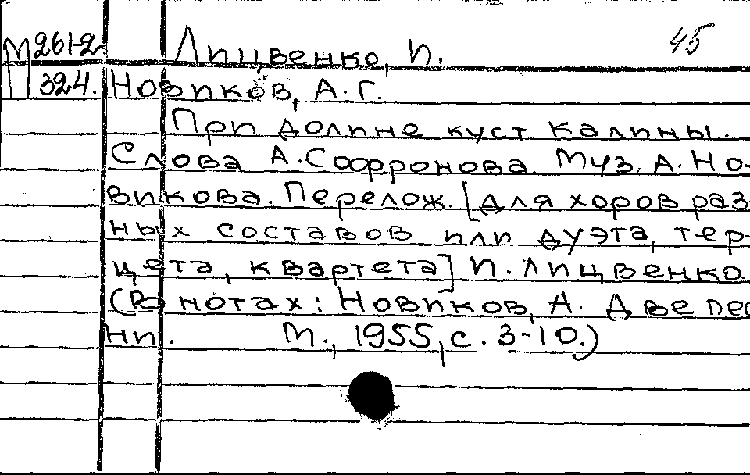 М261-2 Лицвенко, И. 45
324. Новиков, А. Г.
При долине куст калины.
Слова А. Софронова. Муз. А. Но-
викова. Перелож. [для хоров раз
ных составов или дуэта, тер-
цета, квартета] И. Лицвенко.
(В нотах: Новиков, А. Две пес
ни. М., 1955, с. 3-10.)